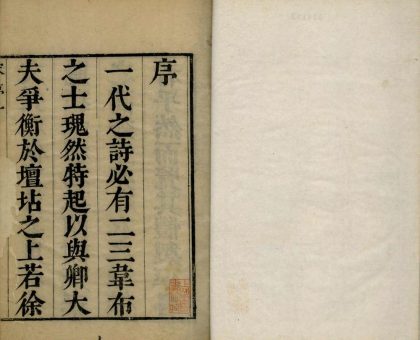 序
一代之詩必有二三韋布
之士瑰然特起以與卿大
夫爭衡於壇坫之上若徐